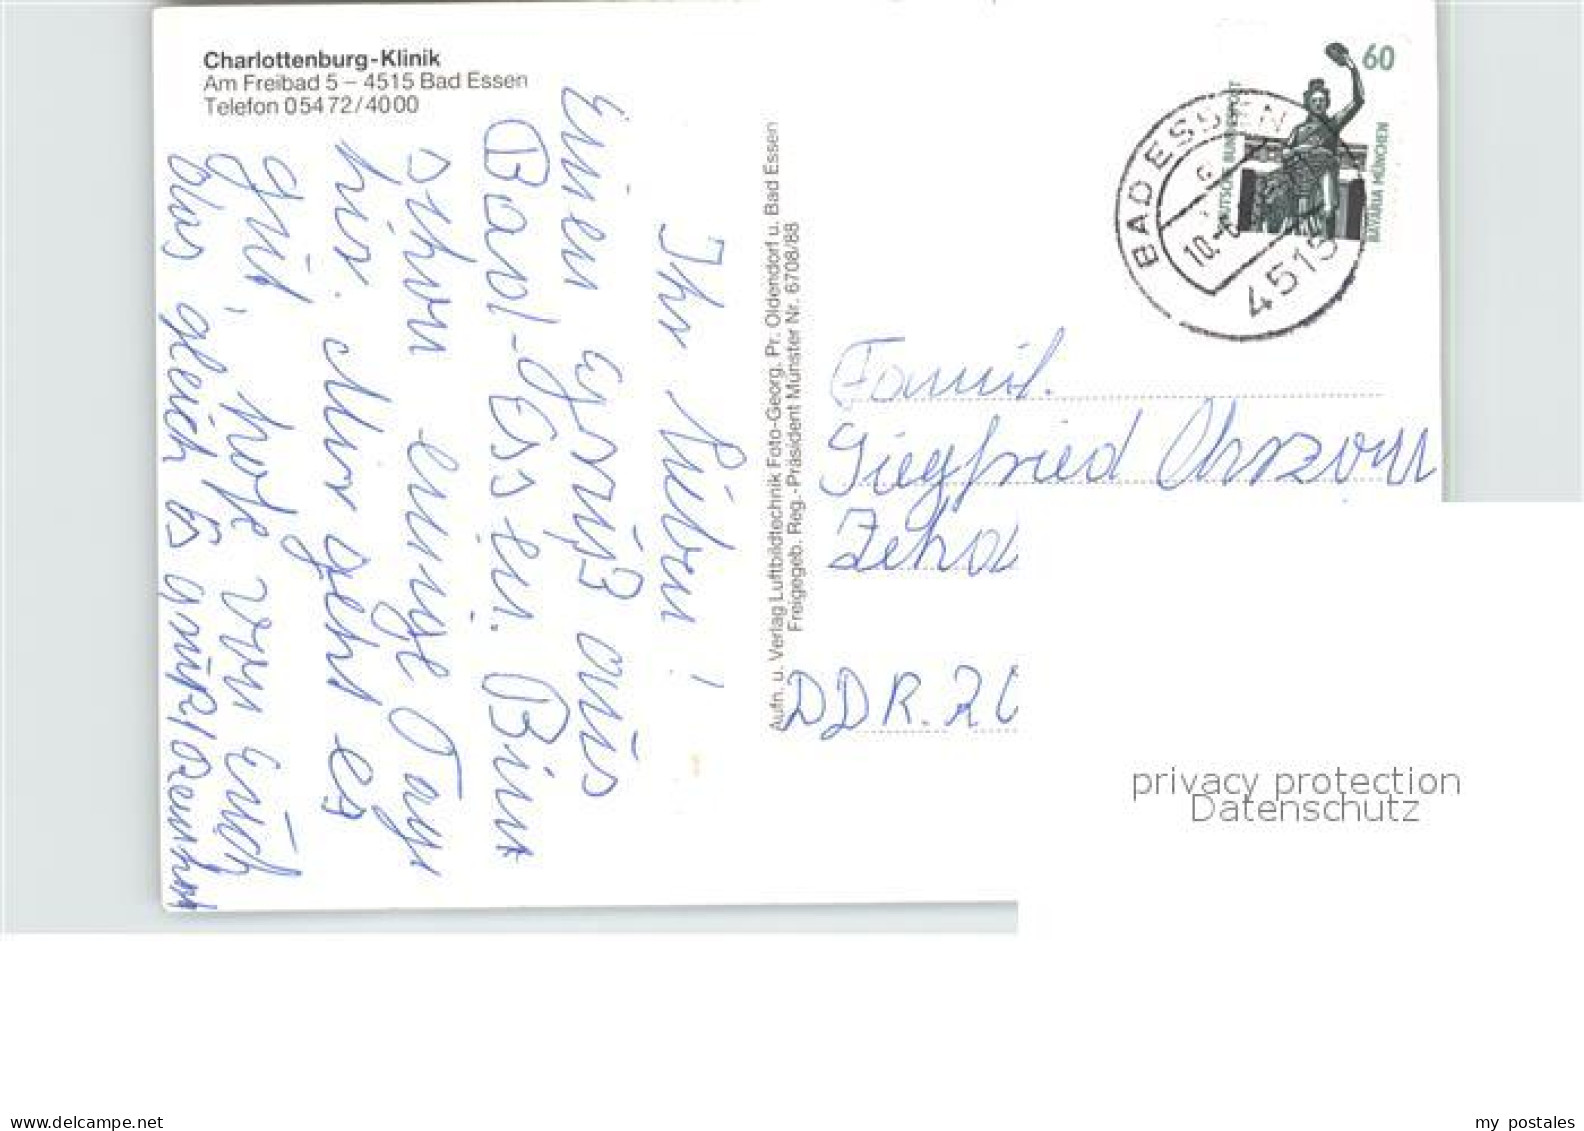 Charlottenburg-Klinik
Am Freibad 5 – 4515 Bad Essen
Telefon 05472/4000
Ihr Lieben!
Einen Gruß aus
Bad-Essen. Bin
schon einige Tage
hir. Mir geht es
gut, hofe von Euch
das gleich Es grüßt
Aufn. u. Verlag Luftbildtechnik Foto-Georg, Pr. Oldendorf u. Bad Essen
Freigegeb. Reg.-Präsident Münster Nr. 6708/88
60
DEUTSCHE BUNDESPOST
BAVARIA MÜNCHEN
BAD ESSEN
10.
4515
Famil.
Siegfried
Zehd
DDR. 20
privacy protection
Datenschutz
www.delcampe.net
my postales